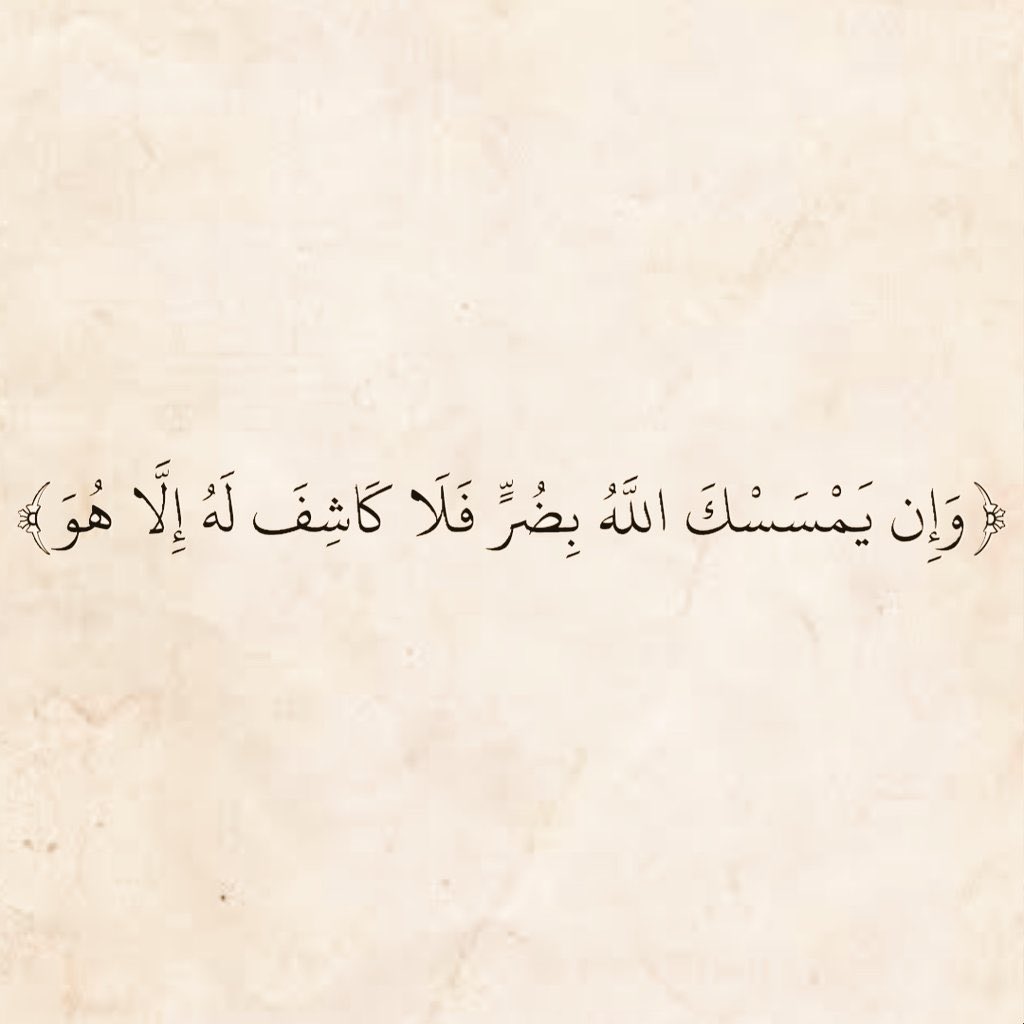 ﴿وَإِن يَمْسَسْكَ اللَّهُ بِضُرٍّ فَلَا كَاشِفَ لَهُ إِلَّا هُوَ﴾